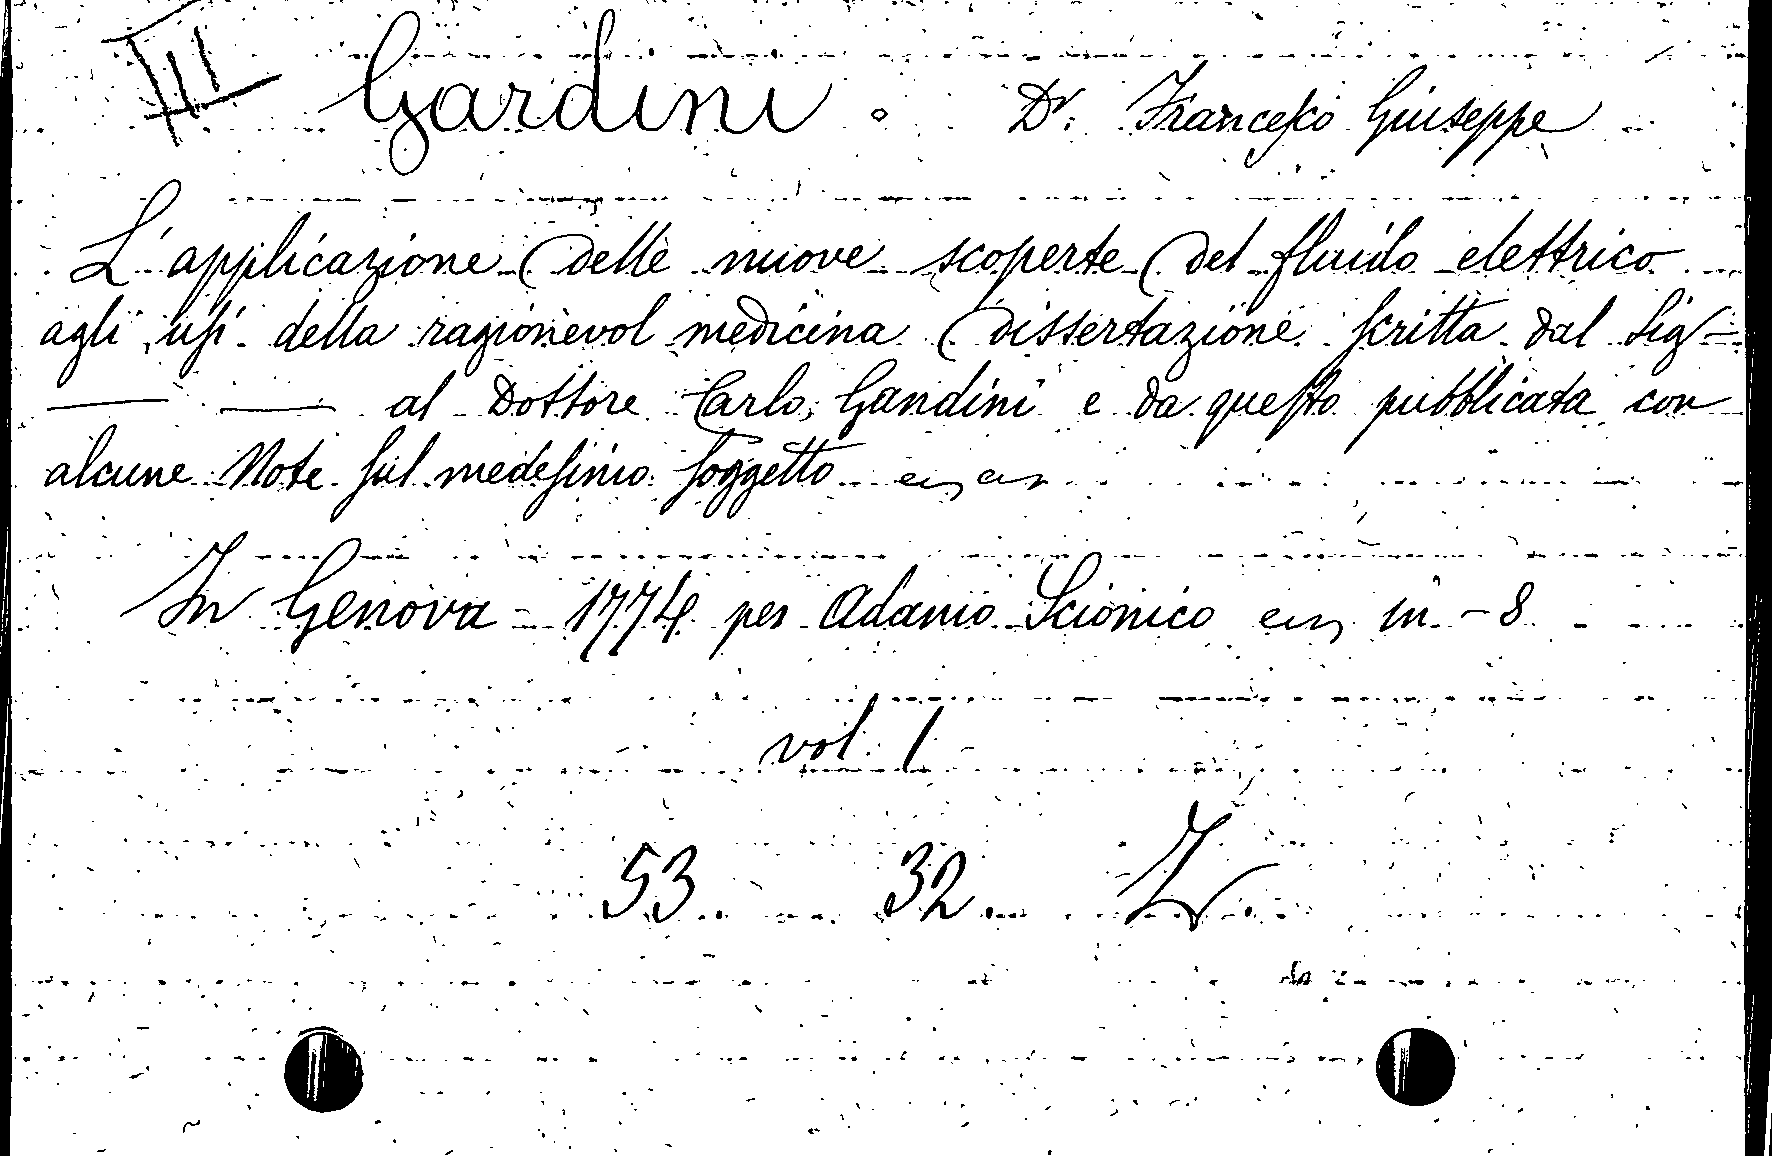 III Gardini. Dr. Francesco Giuseppe
L'applicazione delle nuove scoperte del fluido elettrico
agli usi della ragionevol medicina dissertazione scritta dal Sig
al Dottore Carlo Gandini e da questo pubblicata con
alcune Note sul medesimo soggetto
In Genova - 1774 per Adamo Scionico in - 8
vol. 1
53 32